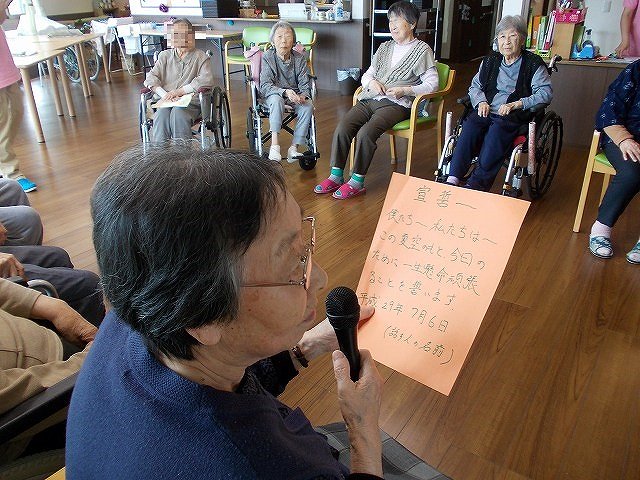 宣誓〜
僕たち〜私たちは〜
この夏空のもと、今日の
ために一生懸命頑張
ることを誓います。
平成29年7月6日
(読む人の名前)